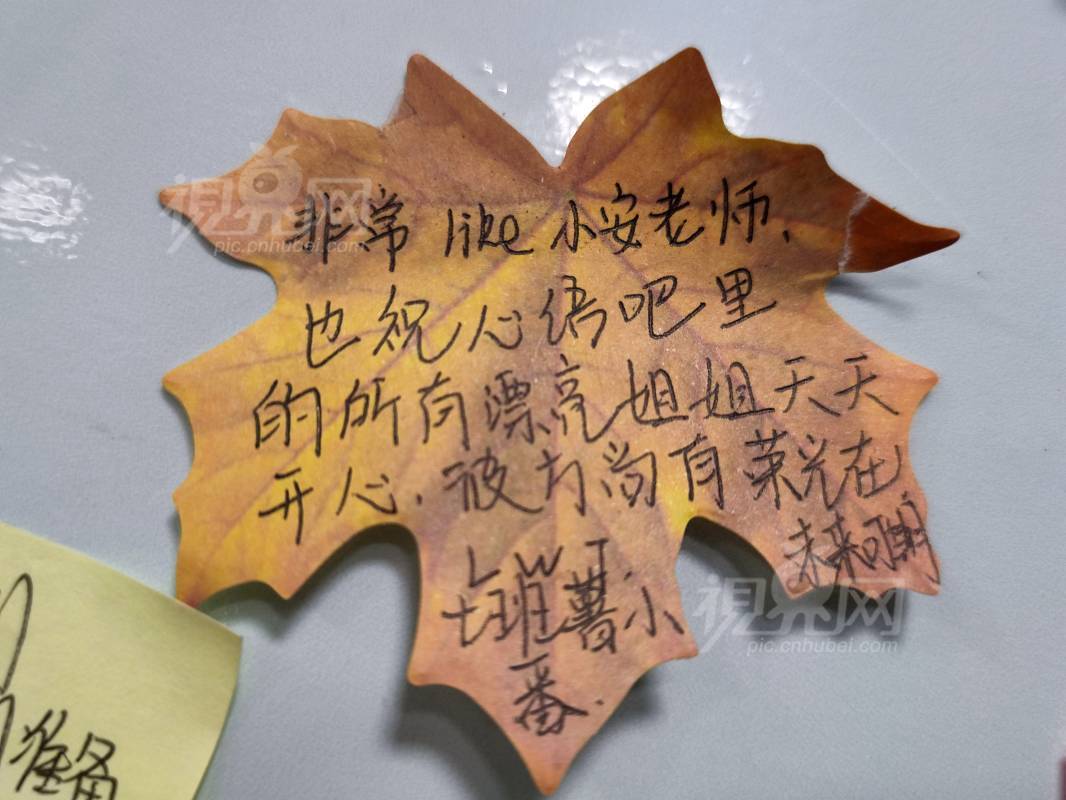 非常 like 小安老师、
也祝心语吧里
的所有漂亮姐姐天天
开心.彼方尚有荣光在
未来可期
LWJ.
七班薯小
番.
准备
視界网
pic.cnhubei.com
視界网
pic.cnhubei.com